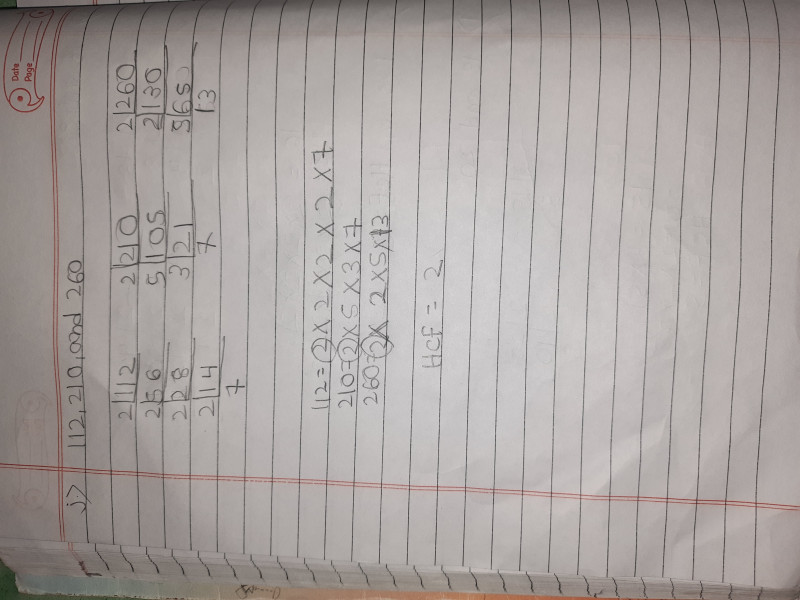 Date
Page
i> 112, 210, and 260
2|112 2|210 2|260
2|56 5|105 2|130
2|28 3|21 5|65
2|14 7 13
7
112 = 2 X 2 X 2 X 2 X 7
210 = 2 X 5 X 3 X 7
260 = 2 X 2 X 5 X 13
HCF = 2